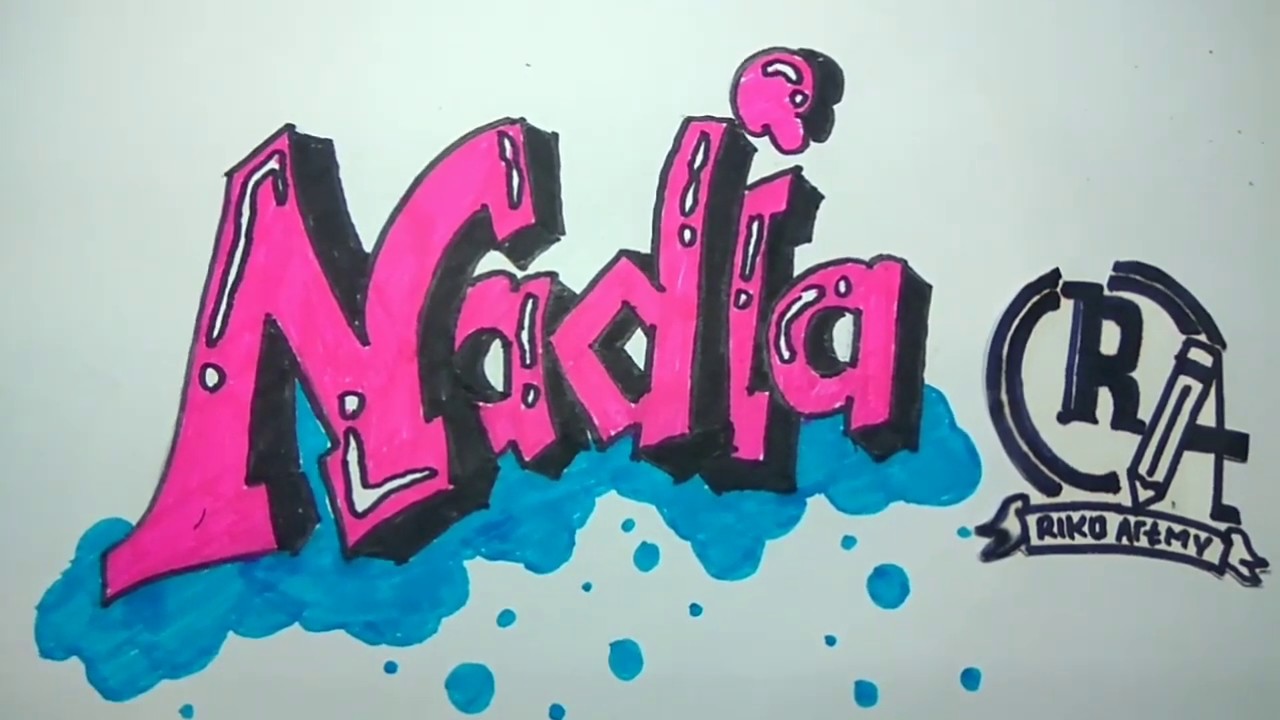 Nadia
RA
RIKO ArtMY